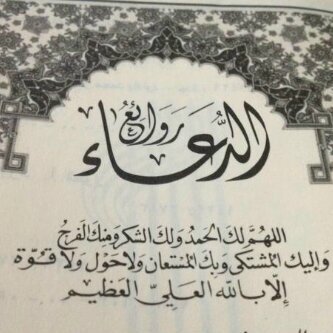 روائع
الدُّعَاء
اللهُمَّ لكَ الحَمدُ ولكَ الشكر ومنكَ الفَرجُ
وإليك المُشتكَى وبكَ المُستعان ولا حَول ولا قوّة
إلّا بالله العَليّ العَظيم